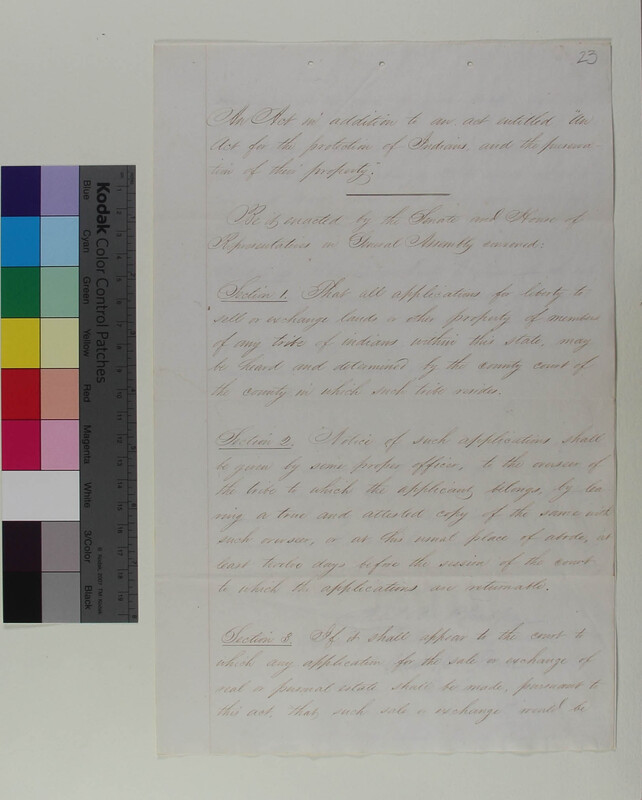 23
An Act in addition to an act entitled "An
Act for the protection of Indians, and the preserva-
tion of their property".
Be it enacted by the Senate and House of
Representatives in General Assembly convened:
Section 1. That all applications for liberty to
sell or exchange lands or other property of members
of any tribe of indians within this state, may
be heard and determined by the county court of
the county in which such tribe resides.
Section 2. Notice of such applications, shall
be given by some proper officer, to the overseer of
the tribe to which the applicant belongs, by lea-
ving a true and attested copy of the same with
such overseer, or at his usual place of abode, at
least twelve days before the session of the court
to which the applications are returnable.
Section 3. If it shall appear to the court to
which any application for the sale or exchange of
real or personal estate shall be made, pursuant to
this act, that, such sale or exchange would be
Kodak Color Control Patches
Blue
Cyan
Green
Yellow
Red
Magenta
White
3/Color
Black